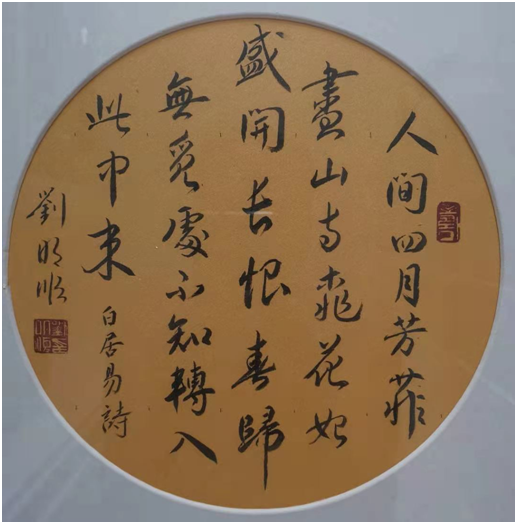 人間四月芳菲
盡山寺桃花始
盛開长恨春歸
無覓處不知轉入
此中来 白居易詩
劉明順